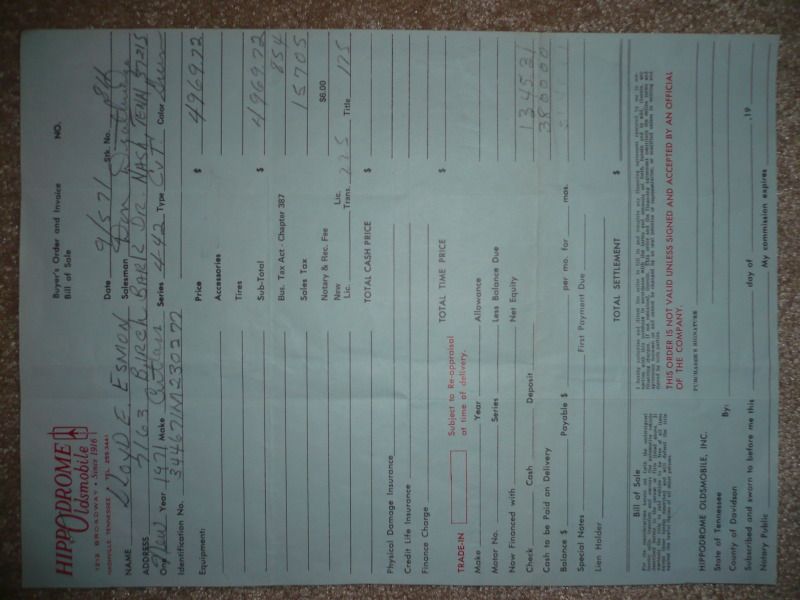 HIPPODROME
Oldsmobile
1216 BROADWAY • Since 1916
NASHVILLE, TENNESSEE • TEL. 255-5441
Buyer's Order and Invoice
Bill of Sale
NO.
NAME LLOYD E ESMON Date 9/5/71 Stk. No.
ADDRESS 7163 BIRCH BARK DR NASH TENN 37215 Salesman
On New Year 1971 Make Cutlass Series 442 Type CVT Color
Identification No. 344671M230277
Equipment: Price $ 496922
Accessories
Tires
Sub-Total $ 496922
Bus. Tax Act - Chapter 387 854
Sales Tax 15705
Notary & Rec. Fee $6.00
New Lic. Lic. Trans. Title 175
TOTAL CASH PRICE $
Physical Damage Insurance
Credit Life Insurance
Finance Charge
TOTAL TIME PRICE $
TRADE-IN Subject to Re-appraisal at time of delivery.
Make Year Allowance
Motor No. Series Less Balance Due
Now Financed with Net Equity
Check Cash Deposit 134531
Cash to be Paid on Delivery 380000
Balance $ Payable $ per mo. for mos.
Special Notes First Payment Due
Lien Holder
TOTAL SETTLEMENT $
Bill of Sale
THIS ORDER IS NOT VALID UNLESS SIGNED AND ACCEPTED BY AN OFFICIAL
OF THE COMPANY.
PURCHASER'S SIGNATURE
HIPPODROME OLDSMOBILE, INC.
State of Tennessee By:
County of Davidson
Subscribed and sworn to before me this day of , 19
Notary Public My commission expires